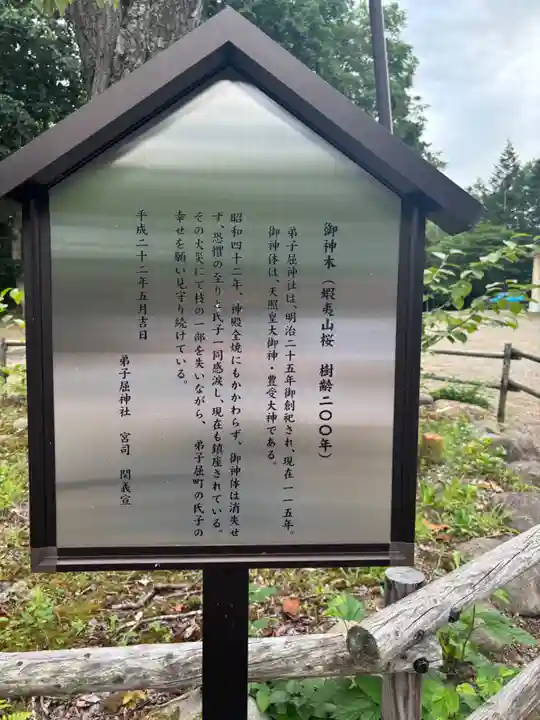 御神木（蝦夷山桜　樹齢二〇〇年）
弟子屈神社は、明治二十五年御創祀され、現在一一五年。
御神体は、天照皇大御神・豊受大神である。
昭和四十二年、神殿全焼にもかかわらず、御神体は消失せ
ず、恐懼の至りと氏子一同感涙し、現在も鎮座されている。
その火災にて枝の一部を失いながら、　弟子屈町の氏子の
幸せを願い見守り続けている。
平成二十二年五月吉日
弟子屈神社　宮司　関義宣